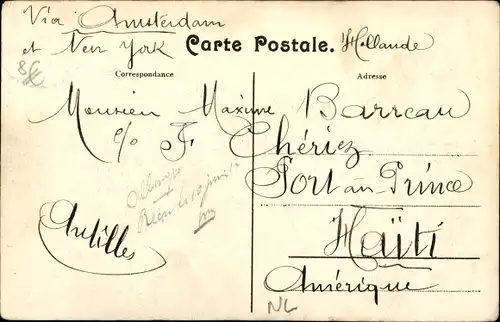 Via Amsterdam
et New York
Carte Postale. Hollande
Correspondance
Adresse
Monsieur Maxime Barreau
c/o F. Chériez
Port-au-Prince
Haïti
Amérique
Antilles
NL